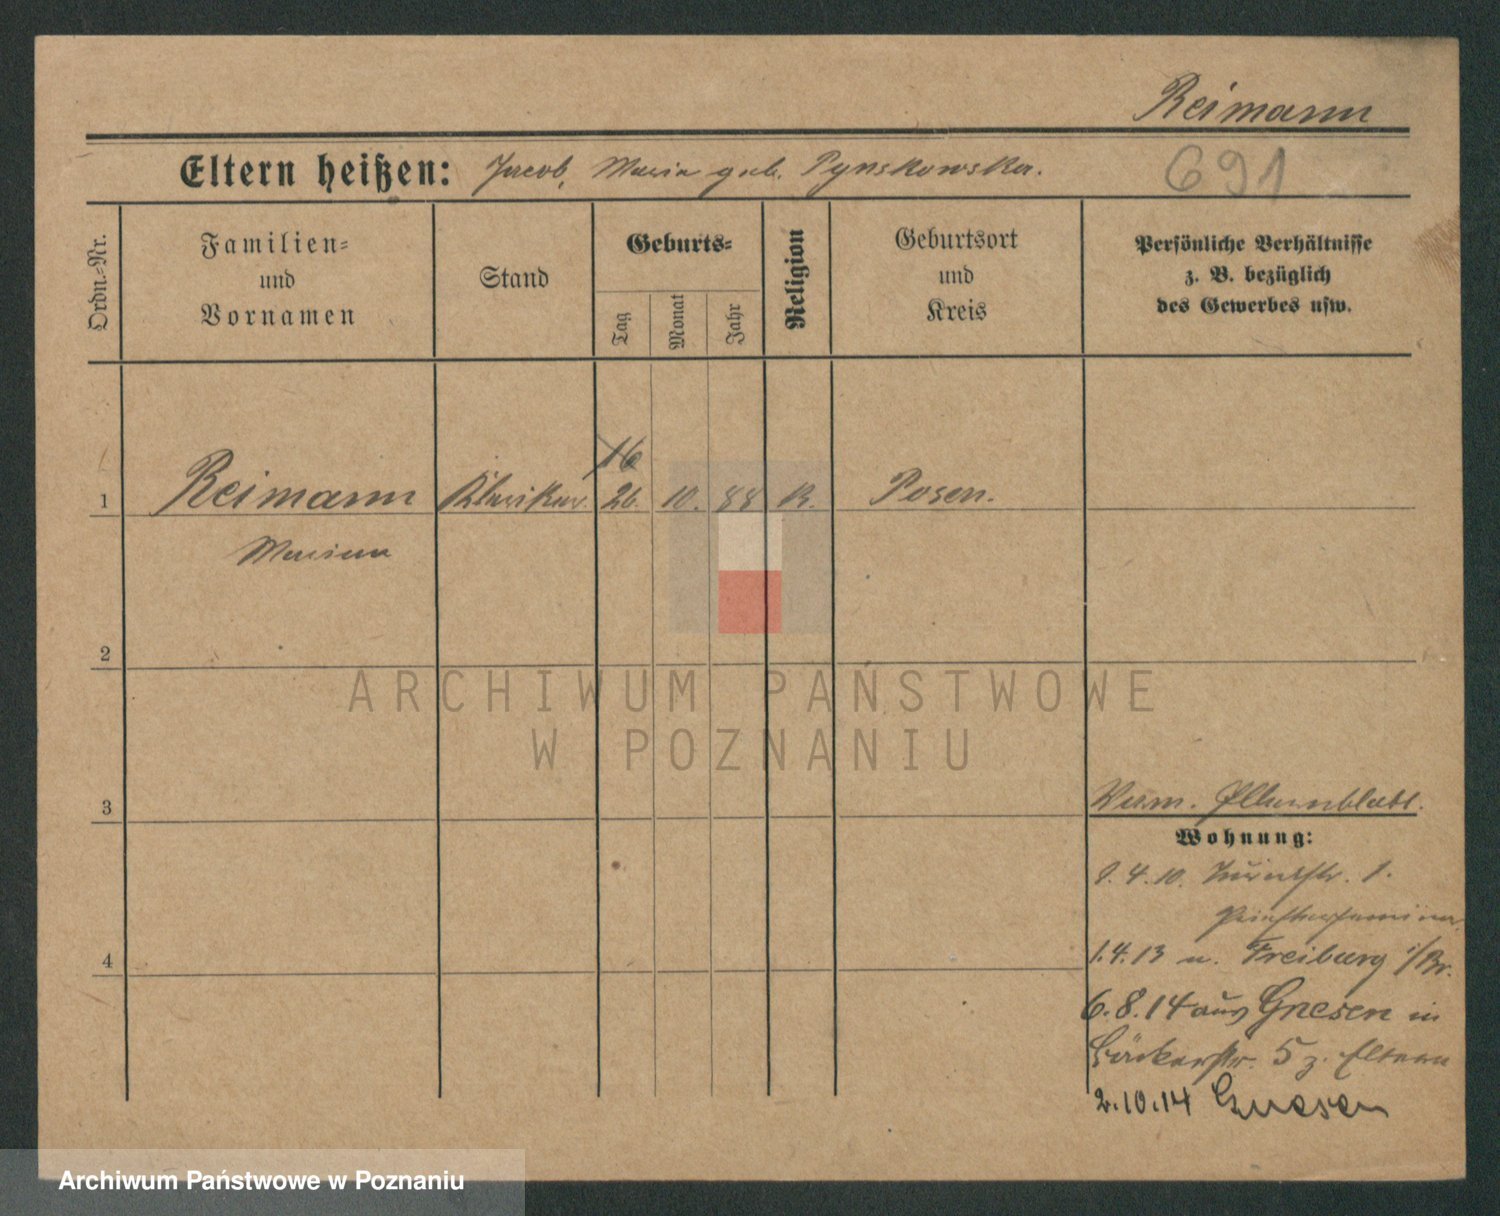 Reimann
Eltern heißen: Jacob, Maria geb. Pynskowska.
691
Ordn.-Nr.
Familien-
und
Vornamen
Stand
Geburts-
Tag
Monat
Jahr
Religion
Geburtsort
und
Kreis
Persönliche Verhältnisse
z. B. bezüglich
des Gewerbes usw.
16
1 Reimann Kleriker. 26. 10. 88 K. Posen.
Marian
2
ARCHIWUM PAŃSTWOWE
W POZNANIU
3
Verm. Elternblatt.
Wohnung:
1.
Priesterseminar
1.4.13 n. Freiburg i/Br.
6.8.14 aus Gnesen in
Bäckerstr. 5 z. Eltern
2.10.14 Gnesen
4
Archiwum Państwowe w Poznaniu